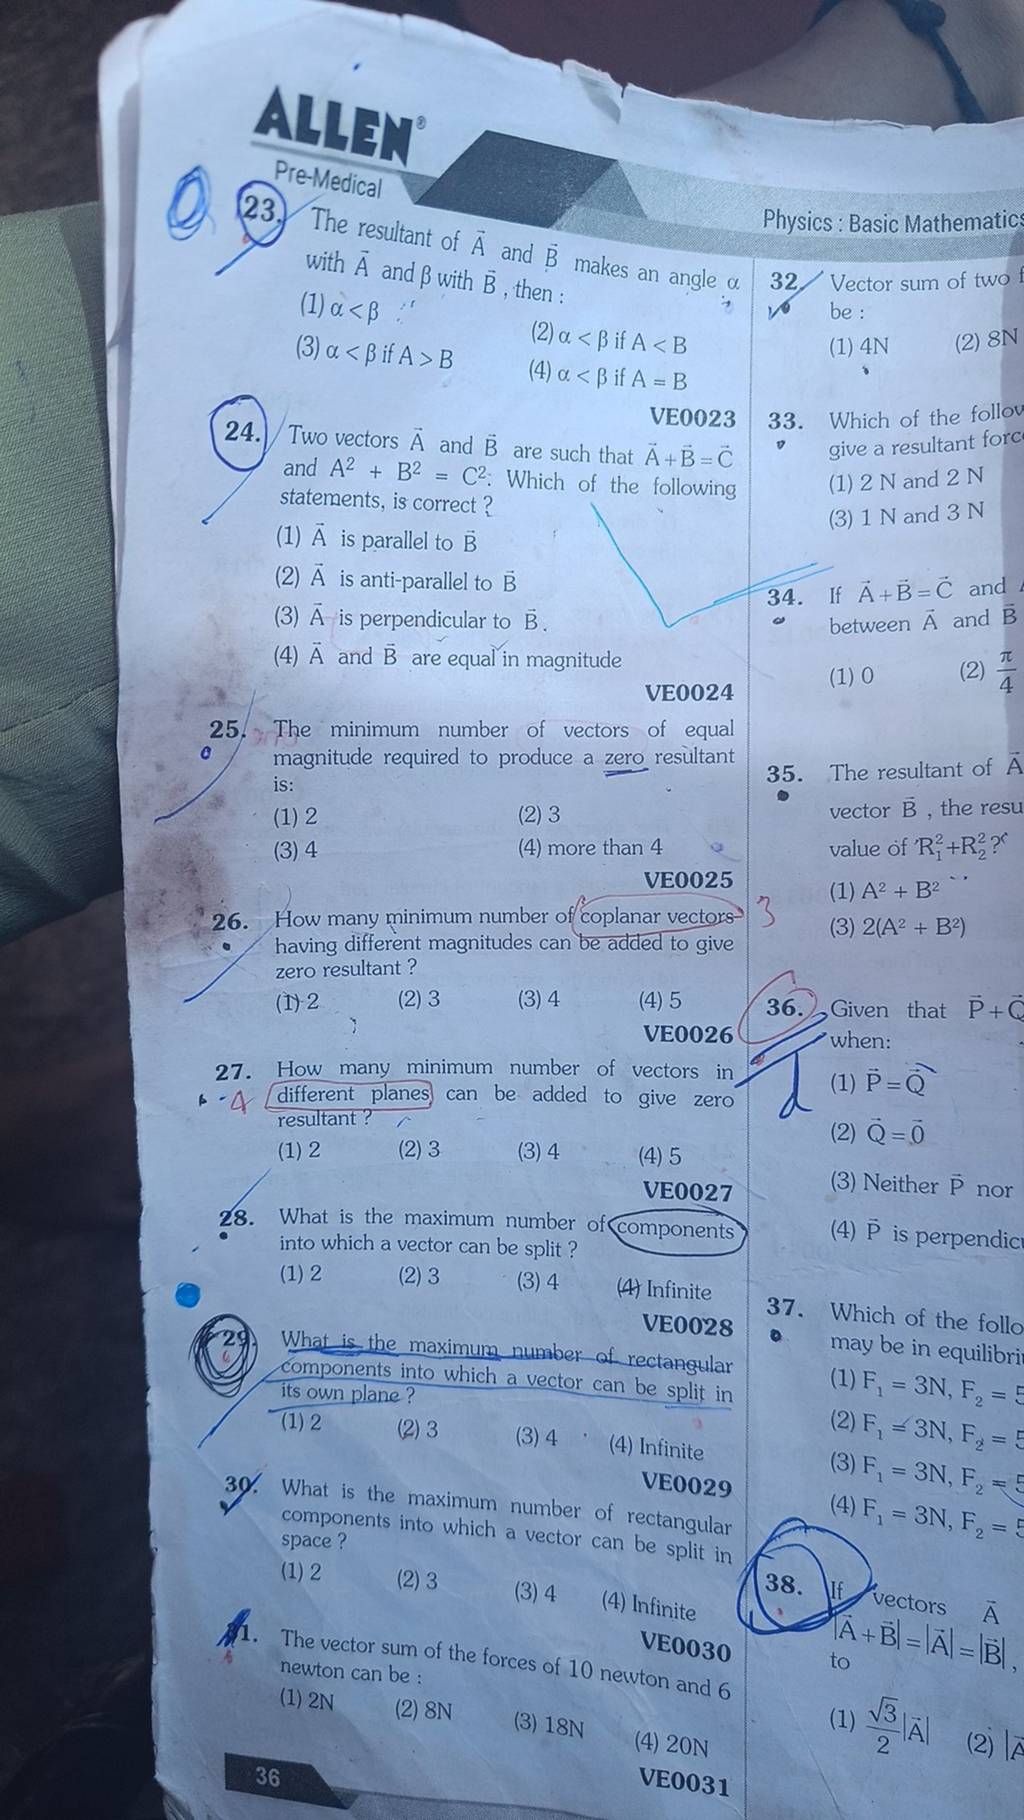 ALLEN®
Pre-Medical
Physics : Basic Mathematics
23. The resultant of A⃗ and B⃗ makes an angle α
with A⃗ and β with B⃗ , then :
(1) α < β
(2) α < β if A < B
(3) α < β if A > B
(4) α < β if A = B
VE0023
24. Two vectors A⃗ and B⃗ are such that A⃗ + B⃗ = C⃗
and A² + B² = C². Which of the following
statements, is correct ?
(1) A⃗ is parallel to B⃗
(2) A⃗ is anti-parallel to B⃗
(3) A⃗ is perpendicular to B⃗ .
(4) A⃗ and B⃗ are equal in magnitude
VE0024
25. The minimum number of vectors of equal
magnitude required to produce a zero resultant
is:
(1) 2 (2) 3
(3) 4 (4) more than 4
VE0025
26. How many minimum number of coplanar vectors 3
having different magnitudes can be added to give
zero resultant ?
(1) 2 (2) 3 (3) 4 (4) 5
VE0026
27. How many minimum number of vectors in
4 different planes can be added to give zero
resultant ?
(1) 2 (2) 3 (3) 4 (4) 5
VE0027
28. What is the maximum number of components
into which a vector can be split ?
(1) 2 (2) 3 (3) 4 (4) Infinite
VE0028
29. What is the maximum number of rectangular
components into which a vector can be split in
its own plane ?
(1) 2 (2) 3 (3) 4 (4) Infinite
VE0029
30. What is the maximum number of rectangular
components into which a vector can be split in
space ?
(1) 2 (2) 3 (3) 4 (4) Infinite
VE0030
31. The vector sum of the forces of 10 newton and 6
newton can be :
(1) 2N (2) 8N (3) 18N (4) 20N
VE0031
36
32. Vector sum of two
be :
(1) 4N (2) 8N
33. Which of the
give a resultant
(1) 2 N and 2 N
(3) 1 N and 3 N
34. If A⃗ + B⃗ = C⃗ and
between A⃗ and B⃗
(1) 0 (2) π/4
35. The resultant of A⃗
vector B⃗ , the
value of R₁²+R₂²?
(1) A² + B²
(3) 2(A² + B²)
36. Given that P⃗ + Q⃗
when:
(1) P⃗ = Q⃗
(2) Q⃗ = 0⃗
(3) Neither P⃗ nor
(4) P⃗ is
37. Which of the
may be in
(1) F₁ = 3N, F₂ =
(2) F₁ = 3N, F₂ =
(3) F₁ = 3N, F₂ =
(4) F₁ = 3N, F₂ =
38. If vectors A⃗
|A⃗ + B⃗| = |A⃗| = |B⃗| ,
to
(1) √3/2 |A⃗| (2)